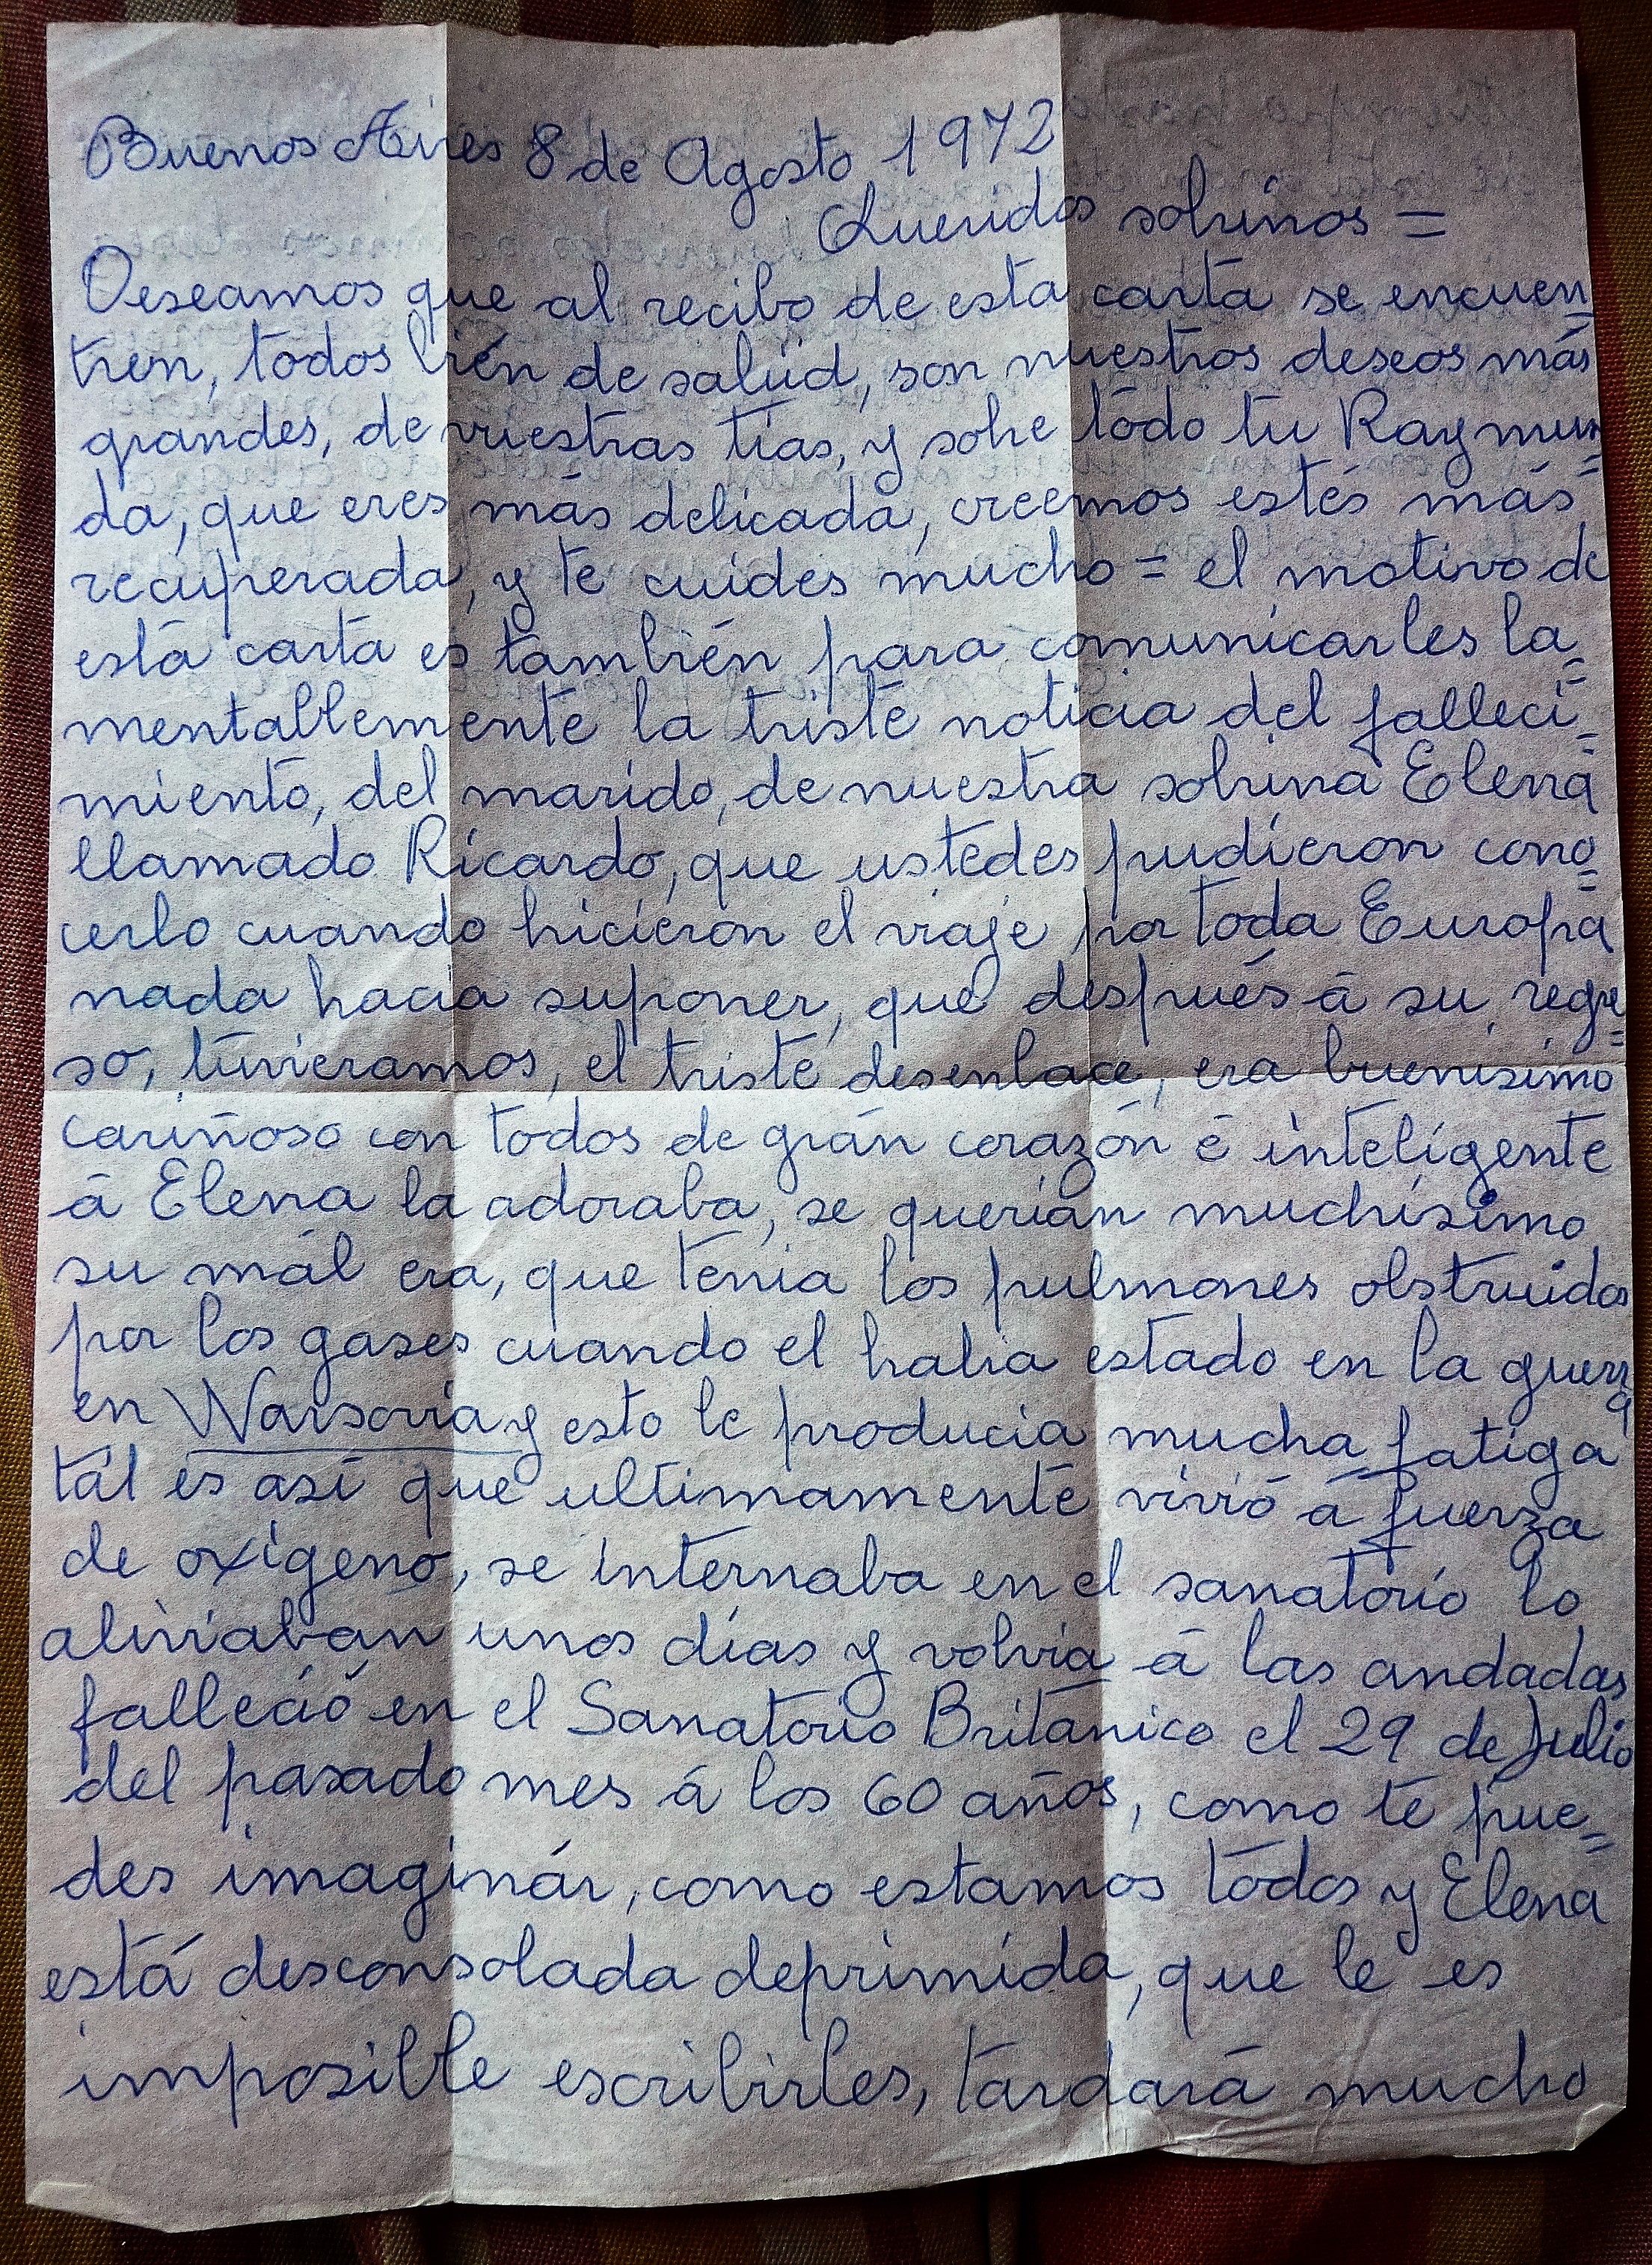 Buenos Aires 8 de Agosto 1972
Queridos sobrinos =
Deseamos que al recibo de esta carta se encuen=
tren, todos bién de salúd, son nuestros deseos más
grandes, de vuestras tías, y sobre todo tu Raymun=
da, que eres más delicada, creemos estés más
recuperada, y te cuides mucho = el motivo de
está carta es también para comunicarles la=
mentablemente la triste noticia del falleci=
miento, del marido, de nuestra sobrina Elena
llamado Ricardo, que ustedes pudieron cono=
cerlo cuando hicieron el viaje por toda Europa
nada hacia suponer, que después á su regre=
so, tuvieramos, el triste desenlace, era buenisimo
cariñoso con todos de grán corazón é inteligente
á Elena la adoraba, se querian muchisimo
su mál era, que tenia los pulmones obstruidos
por los gases cuando el habia estado en la guerra
en Warsovia y esto le producia mucha fatiga
tál es asi que ultimamente vivió á fuerza
de oxigeno, se internaba en el sanatorio lo
aliviaban unos días y volvia á las andadas
falleció en el Sanatorio Británico el 29 de Julio
del pasado mes á los 60 años, como te pue=
des imaginár, como estamos todos y Elena
está desconsolada deprimida, que le es
imposible escribirles, tardará mucho